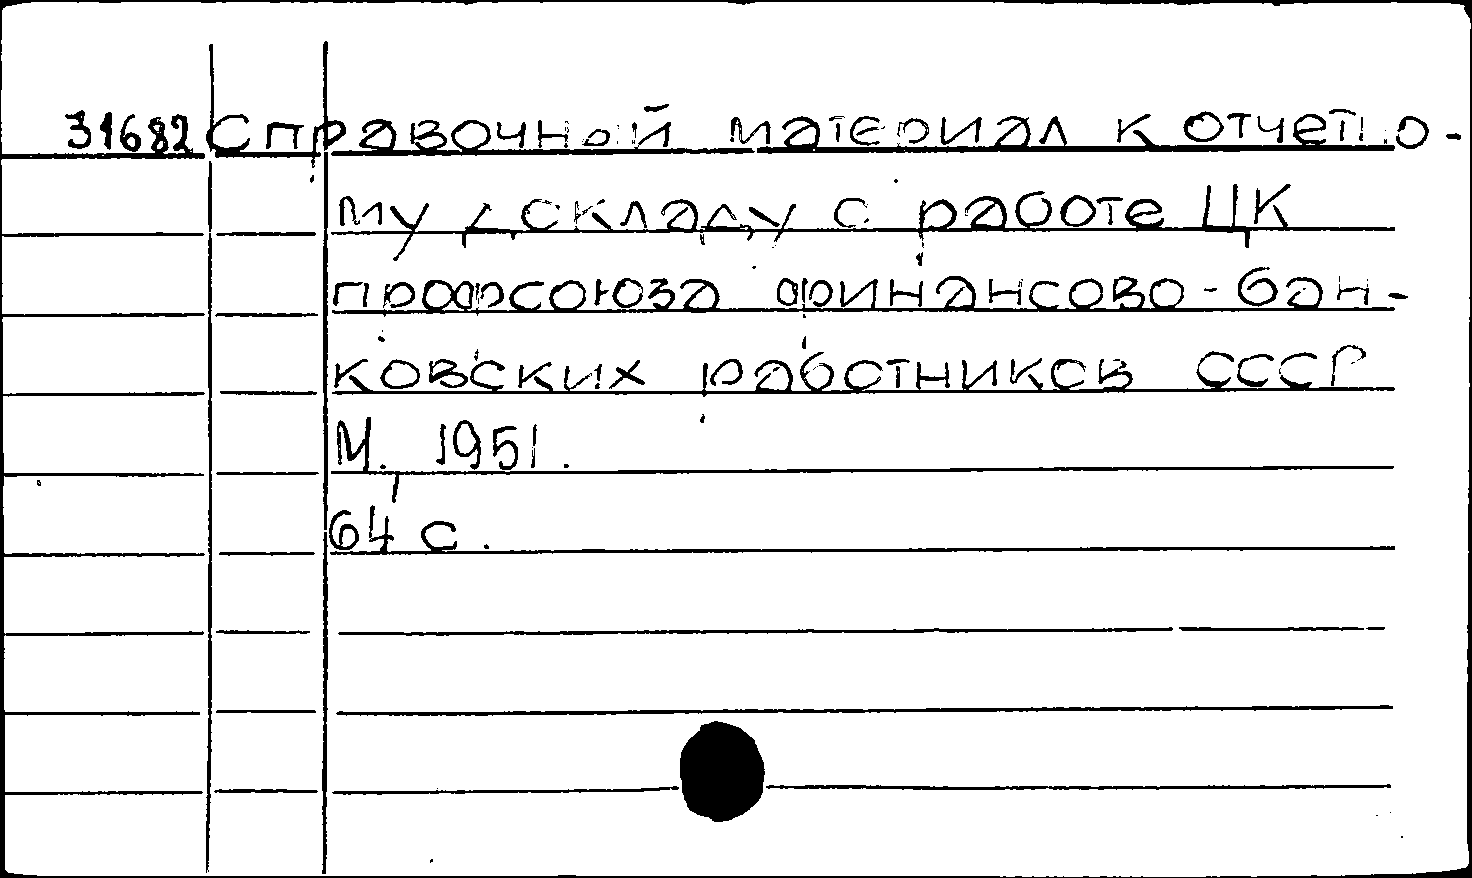 31682 Справочный материал к отчетно-
му докладу о работе ЦК
профсоюза финансово-бан-
ковских работников СССР
М., 1951.
64 с.